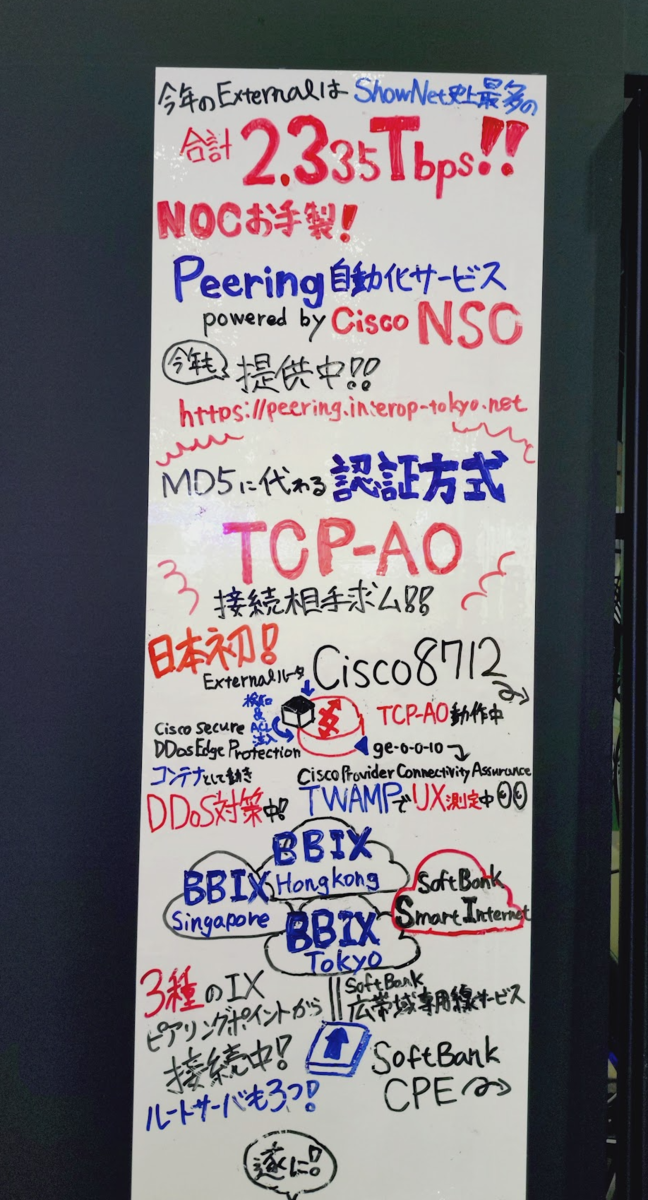 今年のExternalは ShowNet史上最多の
合計 2.335Tbps!!
NOCお手製!
Peering自動化サービス
powered by Cisco NSO
今年も 提供中!!
https://peering.interop-tokyo.net
MD5に代わる 認証方式
TCP-AO
接続相手求ム!!
日本初!
Externalルータ Cisco8712
検知&ACL注入
TCP-AO動作中
Cisco Secure
DDoS Edge Protection
ge-0-0-10
コンテナとして動き
Cisco Provider Connectivity Assurance
DDoS対策中!
TWAMPでUX測定中
BBIX
Hongkong
BBIX
Singapore
SoftBank
Smart Internet
BBIX
Tokyo
3種のIX
ピアリングポイントから
接続中!
ルートサーバも3つ!
SoftBank
広帯域専用線サービス
SoftBank
CPE
遂に!